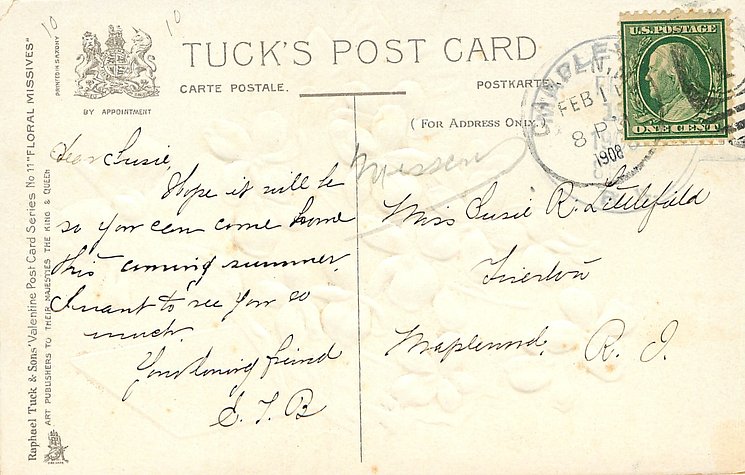 10 10
TUCK'S POST CARD
CARTE POSTALE. POSTKARTE.
BY APPOINTMENT
(FOR ADDRESS ONLY.)
PRINTED IN SAXONY
Raphael Tuck & Sons' Valentine Post Card Series No 11 "FLORAL MISSIVES"
ART PUBLISHERS TO THEIR MAJESTIES THE KING & QUEEN
U.S. POSTAGE
ONE CENT
FEB 11
8 P
1908
Dear Susie,
Hope it will be
so you can come home
this coming summer.
I want to see you so
much.
Your loving friend
S. T. B
Missent
Miss Susie R. Littlefield
Tiverton
Maplewood, R. I.